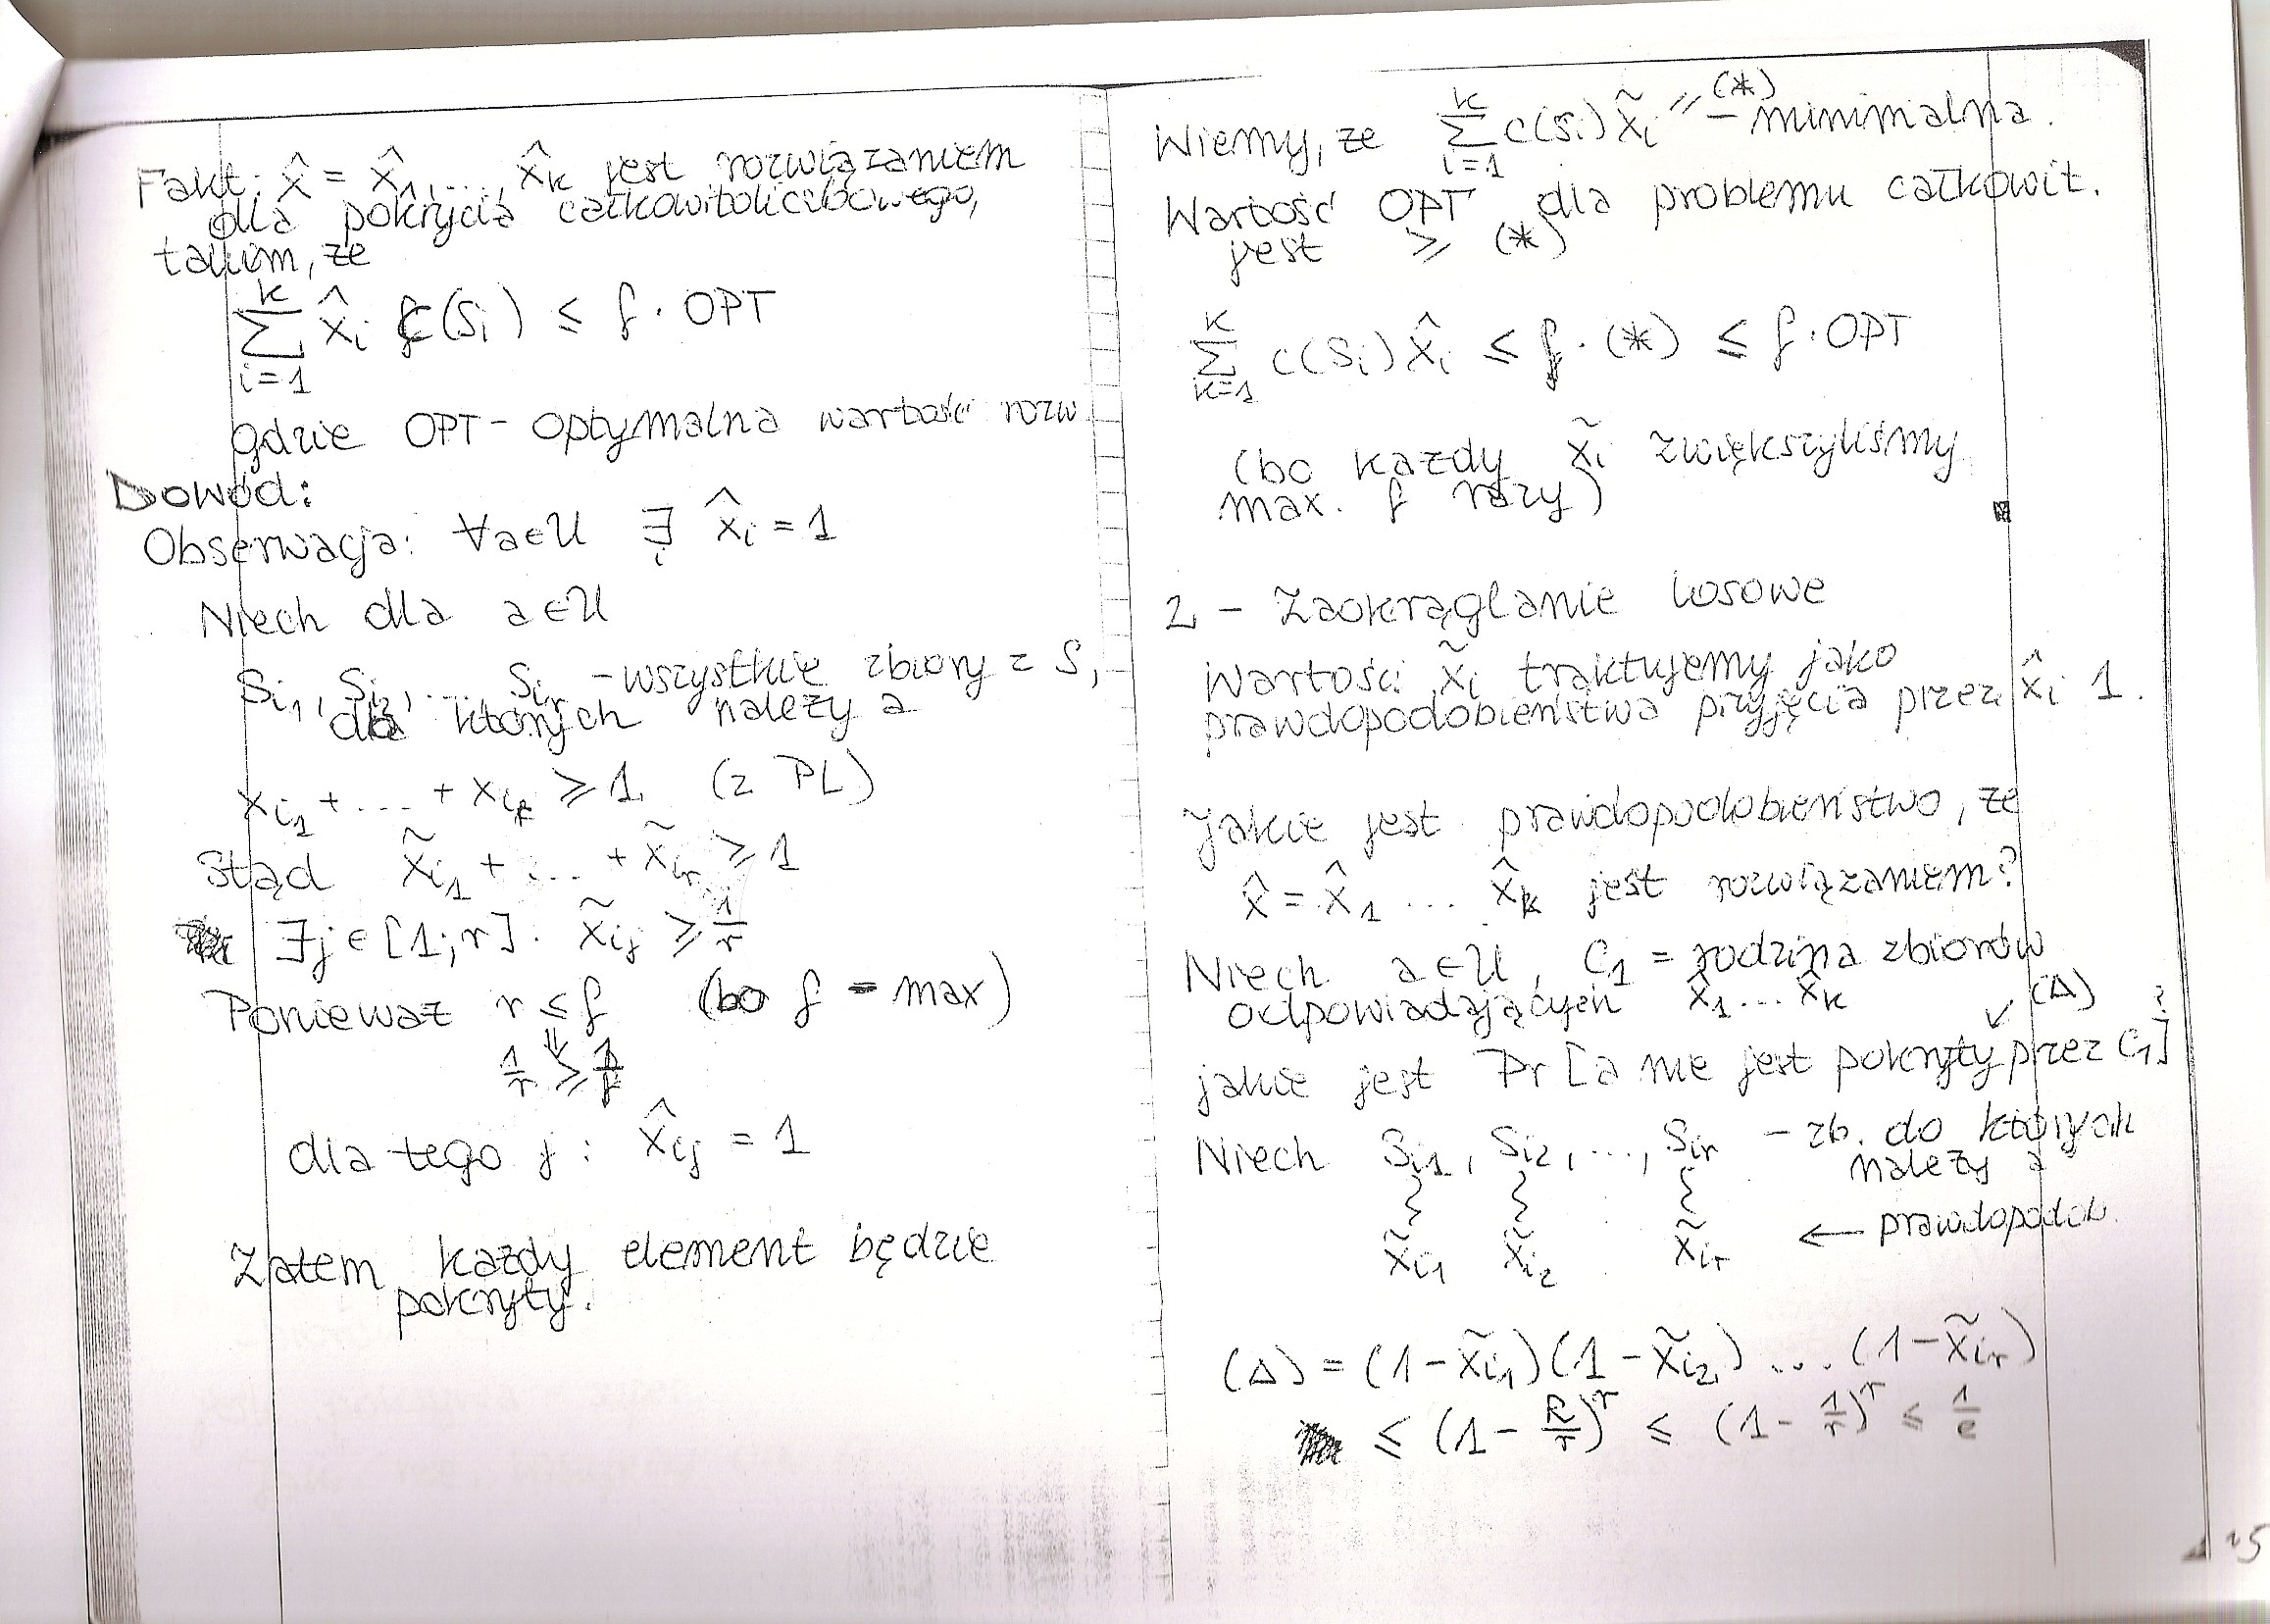 Fakt: x̂ = x̂₁, ..., x̂ₖ jest rozwiązaniem
dla pokrycia całkowitoliczbowego,
takim, że
∑ᵢ₌₁ᵏ x̂ᵢ c(Sᵢ) ≤ f · OPT
gdzie OPT - optymalna wartość rozw.
Dowód:
Obserwacja: ∀a∈U ∃ᵢ x̂ᵢ = 1
Niech dla a∈U
Si₁, Si₂, ... Siᵣ - wszystkie zbiory z S,
dla których należy a
xi₁ + ... + xiᵣ ≥ 1 (z PL)
Stąd x̃i₁ + ... + x̃iᵣ ≥ 1
∃j∈[1;r]. x̃iⱼ ≥ 1/r
Ponieważ r ≤ f (bo f = max)
⇓
1/r ≥ 1/f
dla tego j: x̂iⱼ = 1
Zatem każdy element będzie
pokryty.
Wiemy, że ∑ᵢ₌₁ᵏ c(Sᵢ) x̃ᵢ =(*) - minimalna.
Wartość OPT dla problemu całkowit.
jest ≥ (*)
∑ₖ₌₁ᴷ c(Sᵢ) x̂ᵢ ≤ f · (*) ≤ f · OPT
(bo każdy x̃ᵢ zwiększyliśmy
max. f razy)
2 - Zaokrąglanie losowe
Wartości x̃ᵢ traktujemy jako
prawdopodobieństwa przyjęcia przez x̂ᵢ 1.
Jakie jest prawdopodobieństwo, że
x̂ = x̂₁ ... x̂ₖ jest rozwiązaniem?
Niech a∈U, C₁ = rodzina zbiorów
odpowiadających x̂₁ ... x̂ₖ
↙ (Δ)
jakie jest Pr[a nie jest pokryty przez C₁]?
Niech Si₁, Si₂, ..., Siᵣ - zb. do których
należy a
x̃i₁ x̃i₂ x̃iᵣ ← prawdopodob.
(Δ) = (1-x̃i₁)(1-x̃i₂) ... (1-x̃iᵣ)
≤ (1 - R/r)ʳ ≤ (1 - 1/r)ʳ ≤ 1/e